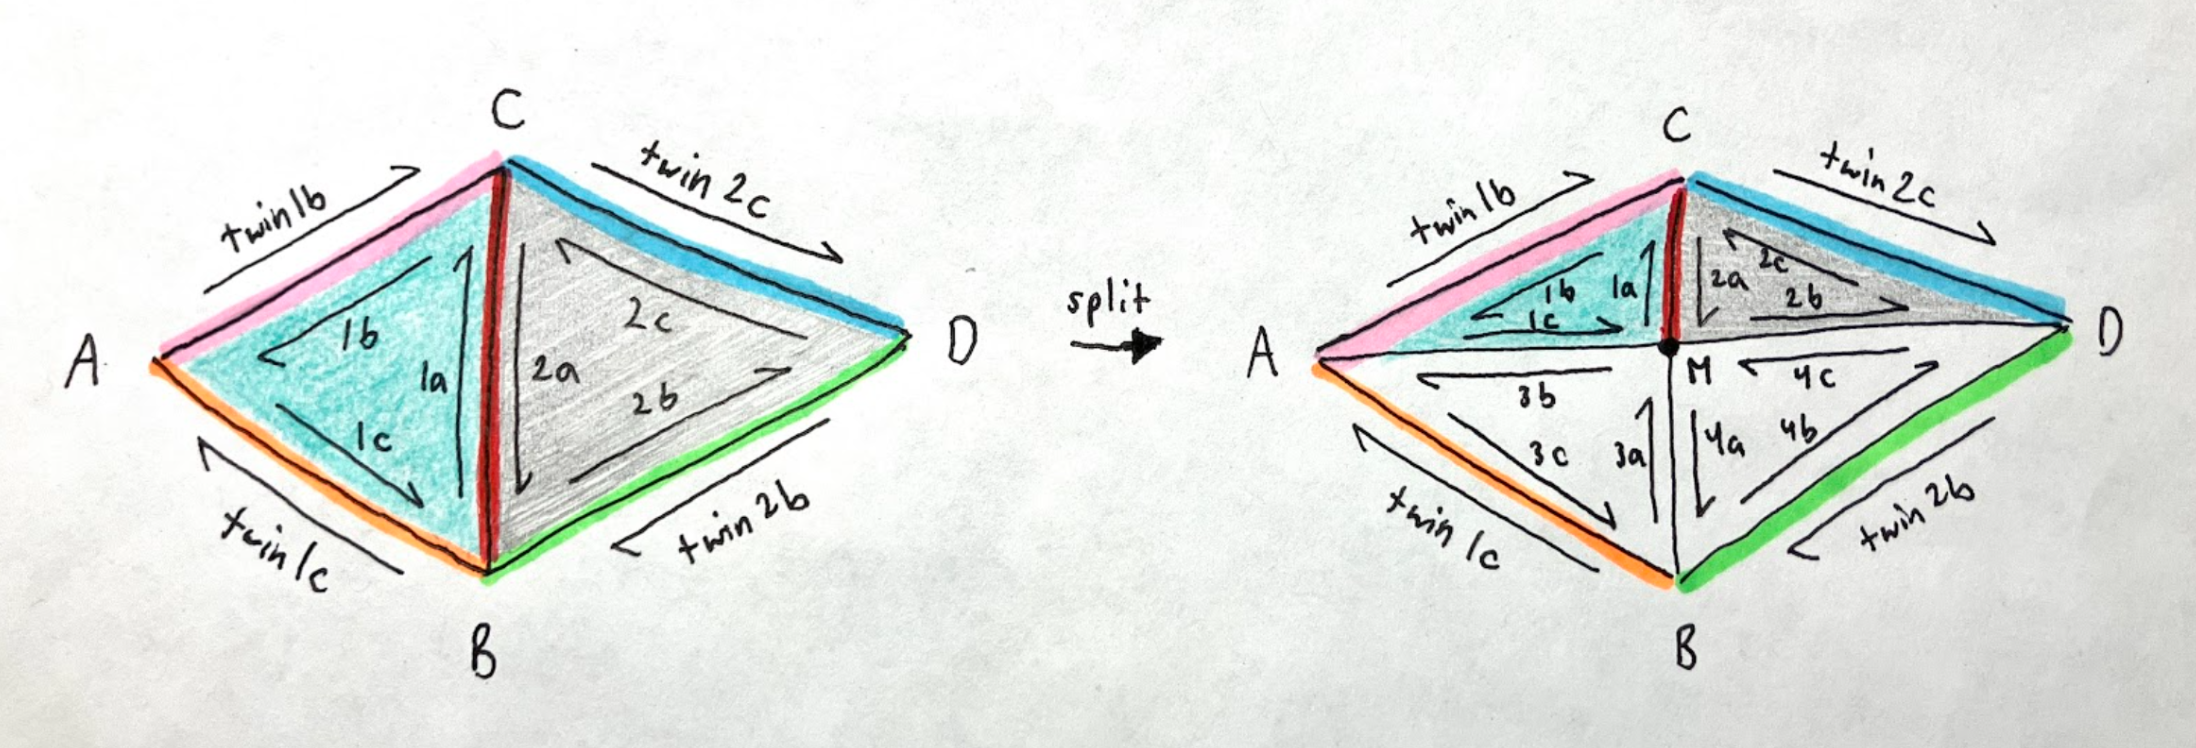 C
twin 1b
twin 2c
1b
1a
2a
2c
2b
1c
A
D
twin 1c
twin 2b
B
split
C
twin 1b
twin 2c
1b
1a
1c
2a
2c
2b
A
D
M
3b
4c
3c
3a
4a
4b
twin 1c
twin 2b
B